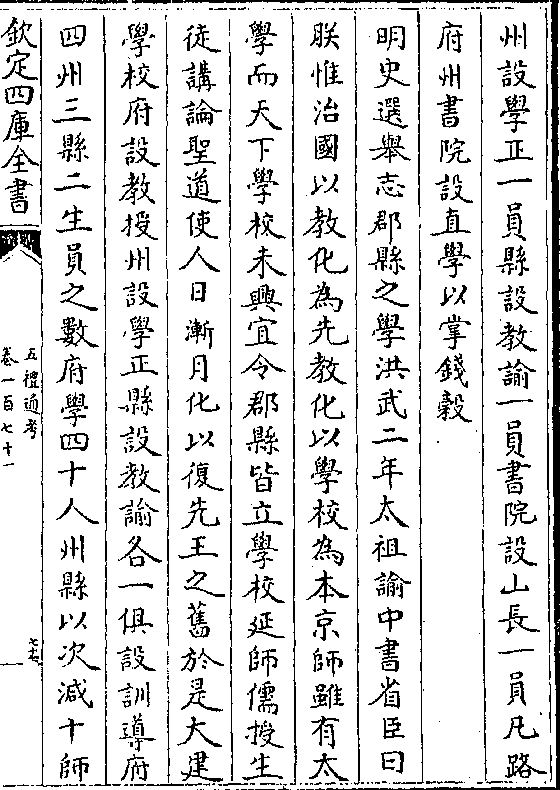 州設學正一員縣設教諭一員書院設山長一員凡路
府州書院設直學以掌錢穀
明史選舉志郡縣之學洪武二年太祖諭中書省臣曰
朕惟治國以教化為先教化以學校為本京師雖有太
學而天下學校未興宜令郡縣皆立學校延師儒授生
徒講論聖道使人日漸月化以復先王之舊於是大建
學校府設教授州設學正縣設教諭各一俱設訓導府
四州三縣二生員之數府學四十人州縣以次減十師
欽定四庫全書
五禮通考
卷一百七十一